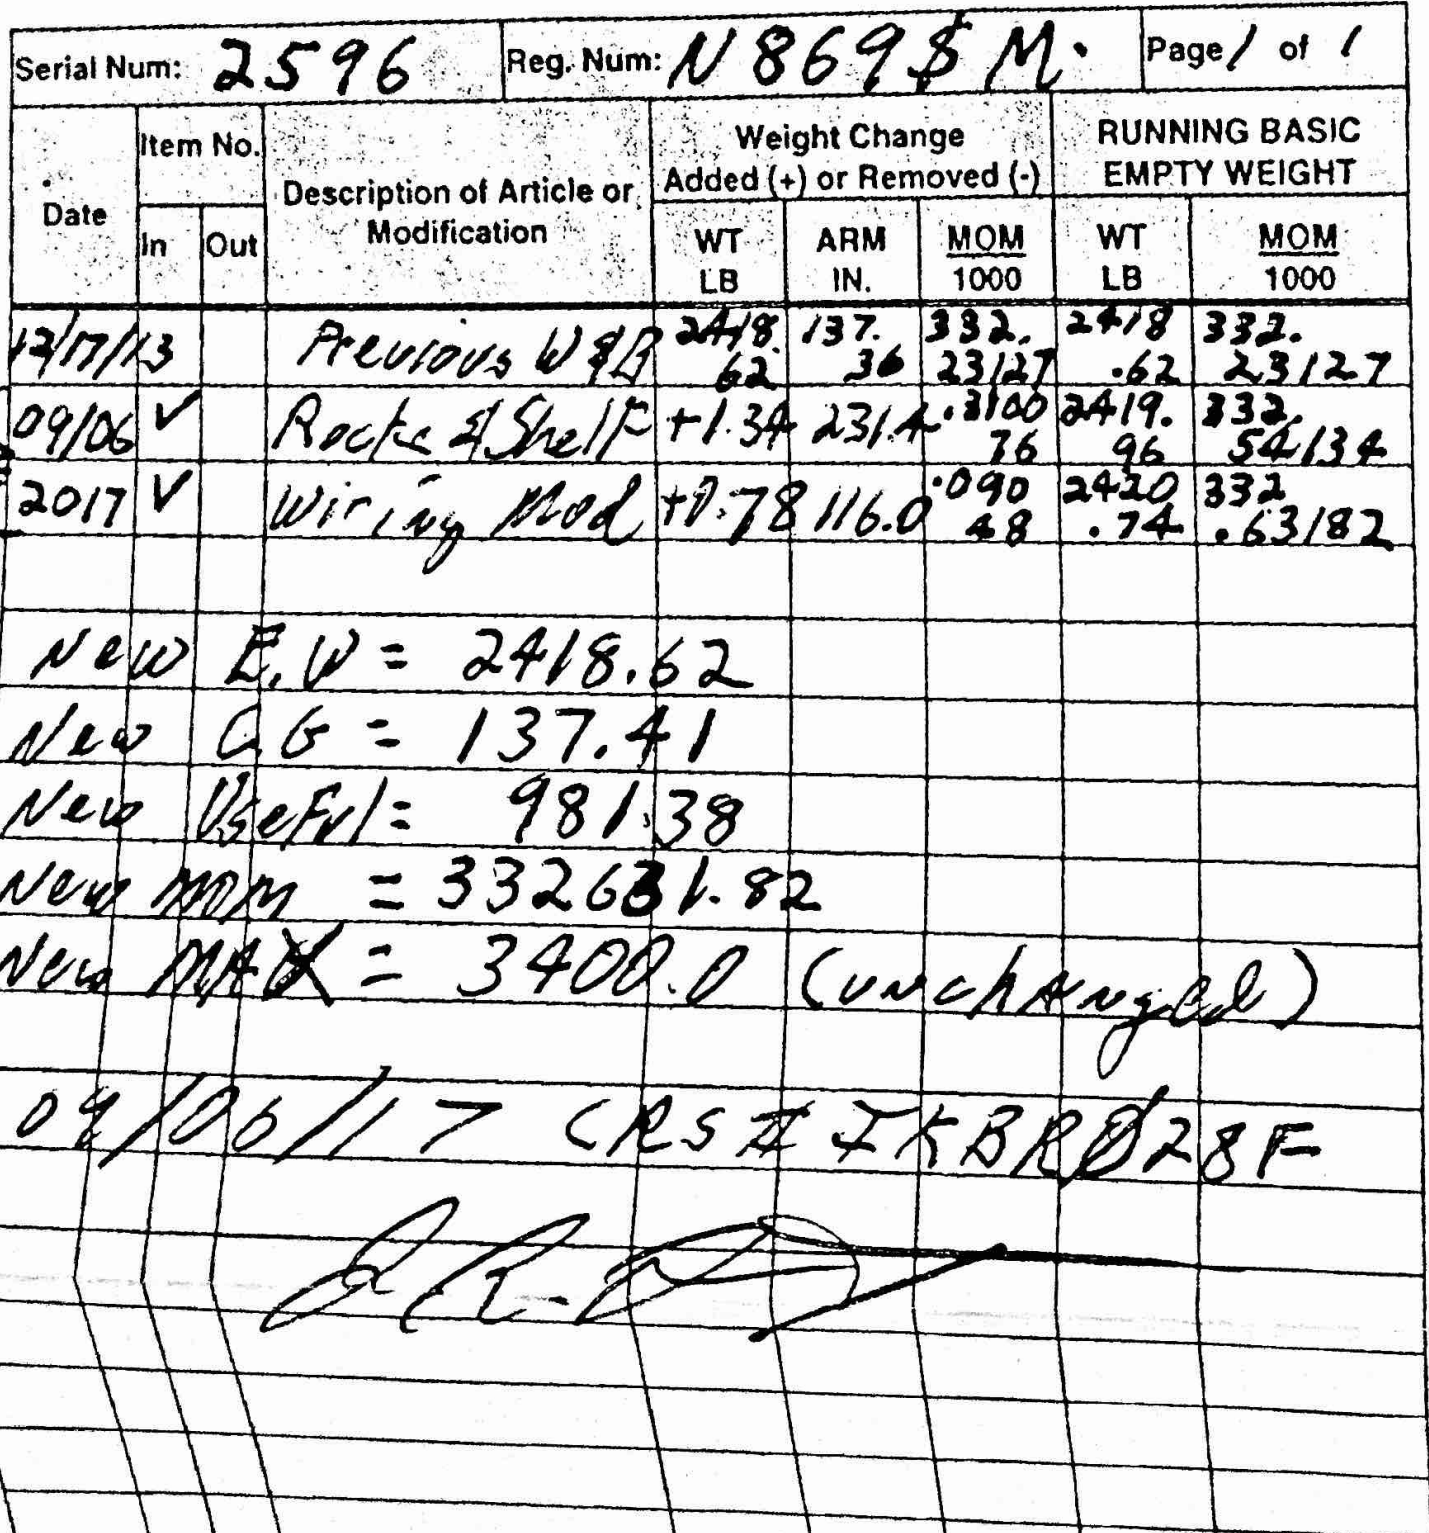 Serial Num: 2596 Reg. Num: N 869$ M. Page 1 of 1
Date Item No. In Out Description of Article or Modification Weight Change Added (+) or Removed (-) WT LB ARM IN. MOM 1000 RUNNING BASIC EMPTY WEIGHT WT LB MOM 1000
12/17/13 Previous W&B 2418. 62 137. 36 332. 23127 2418 .62 332. 23127
09/06 ✓ Rack & Shelf +1.34 231.4 .3100 76 2419. 96 332. 54134
2017 ✓ Wiring Mod +0.78 116.0 .090 48 2420 .74 332 .63182
New E.W = 2418.62
New C.G = 137.41
New Useful = 981.38
New MOM = 332631.82
New MAX = 3400.0 (unchanged)
09/06/17 CRS# IKBRØ28F